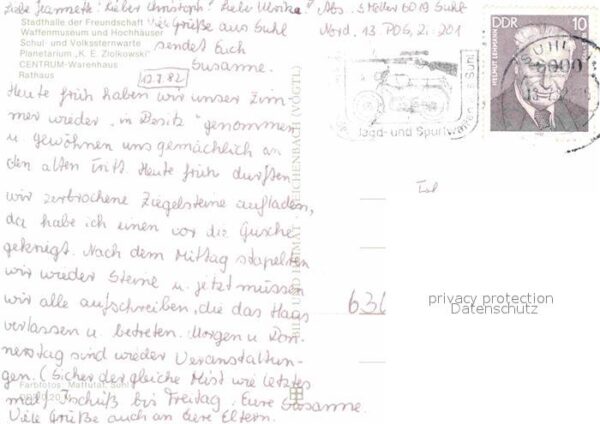 Liebe Jeannette! Lieber Christoph! Liebe Ulrike!
Stadthalle der Freundschaft
Viele Grüße aus Suhl
Waffenmuseum und Hochhäuser
Schul- und Volkssternwarte
sendet Euch
Planetarium „K. E. Ziolkowski"
Susanne.
CENTRUM-Warenhaus
Rathaus
13.7.82
Heute früh haben wir unser Zim-
mer wieder „in Besitz" genommen
u. gewöhnen uns gemächlich an
den alten Tritt. Heute früh durften
wir zerbrochene Ziegelsteine aufladen,
da habe ich einen vor die Gusche
gekriegt. Nach dem Mittag stapelten
wir wieder Steine u. jetzt müssen
wir alle aufschreiben, die das Haus
verlassen u. betreten. Morgen u. Don-
nerstag sind wieder Veranstaltun-
gen. (Sicher der gleiche Mist wie letztes
Farbfotos: Mattutat, Suhl
mal) Tschüß bis Freitag. Eure Susanne.
Viele Grüße auch an Eure Eltern.
BILD UND HEIMAT REICHENBACH (VOGTL)
Abs. 6019 Suhl
Nord. 13. POS, Zi. 201
Suhl
Jagd- und Sportwaffen
DDR 10
HELMUT LEHMANN
SUHL
6000
636
privacy protection
Datenschutz